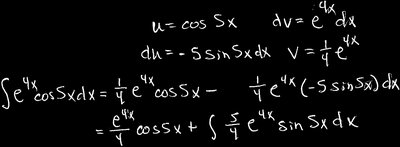 u = cos 5x    dv = e^{4x} dx
du = -5 sin 5x dx    v = 1/4 e^{4x}
∫ e^{4x} cos 5x dx = 1/4 e^{4x} cos 5x - 1/4 e^{4x} (-5 sin 5x) dx
= e^{4x}/4 cos 5x + ∫ 5/4 e^{4x} sin 5x dx